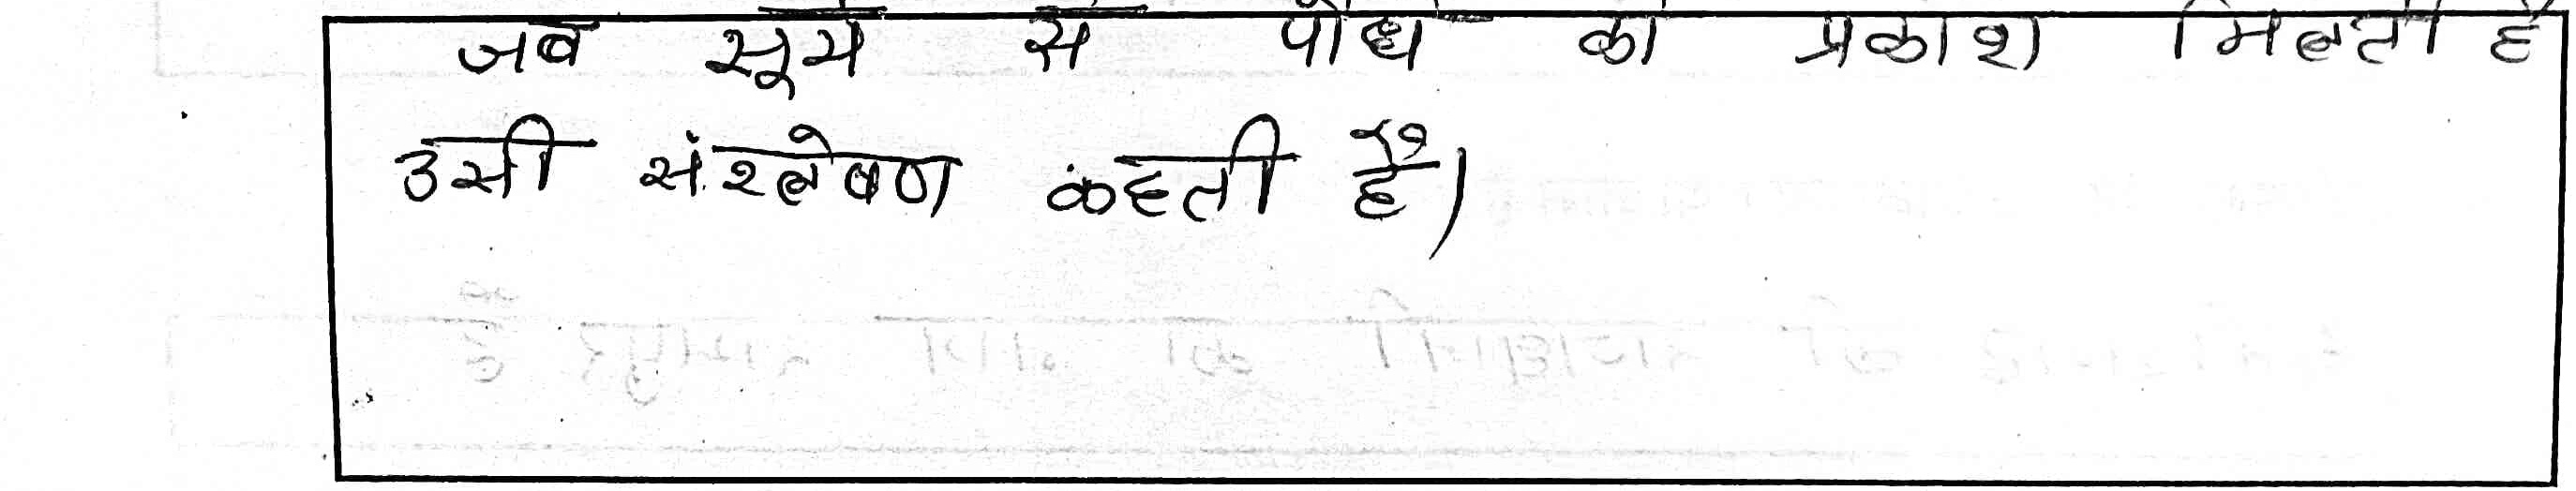 जब सूर्य से पौधे को प्रकाश मिलती है
उसी संश्लेषण कहती हैं।